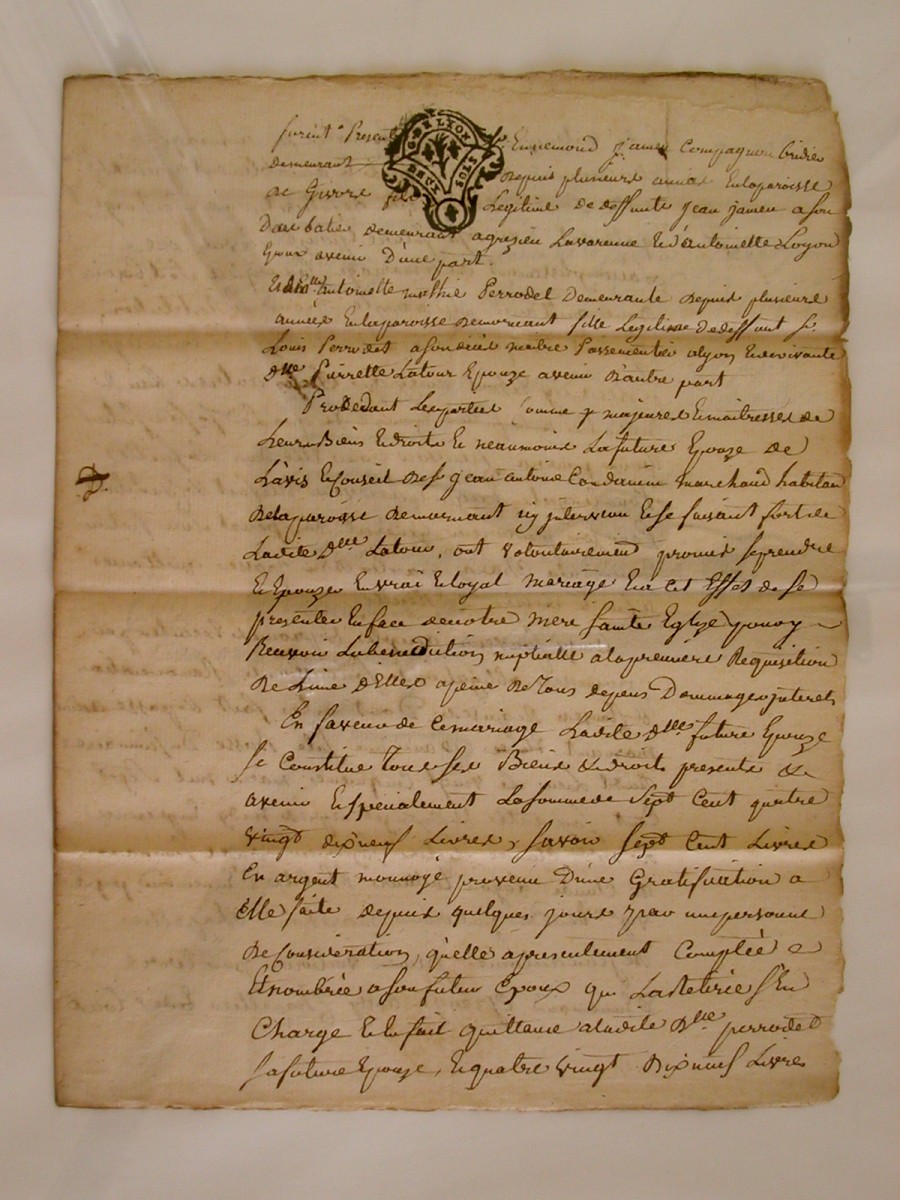 furent Presents Sr Ennemond jamen Compagnon
demeurant depuis plusieurs années Enlaparoisse
de Givors fils Legitime de deffunts jean jamen ason
demeurant Lavarenne Et d'antoinette Loyon
Epoux avenir D'une part.
Et dlle antoinette Perrodet Demeurante depuis plusieurs
années Enlaparoisse demornant fille Legitime dedeffunt sr
Louis Perrodet asondécès Passementier alyon Et devivante
dlle Pierrette Latour Epouze avenir D'autre part
Procedant Lesparties Comme majeures Et maitresses de
Leurs Biens Et droits Et neaumoins Lafuture Epouze de
L'avis Et Conseil de sr jean antoine Condamin marchand habitan
delaparoisse demornant icy Et se faisant fort de
Ladite Dlle Latour, ont volontairement promis seprendre
Et Epouzer En vrai Et loyal mariage Et a cet Effet de se
presenter En face de notre mere sainte Eglize pour y
Recevoir La benediction nuptialle alapremiere Requisition
de L'une d'Elles apeine de tous depens Dommages interets
En faveur de Cemariage Ladite dlle future Epouze
se Constitue Tous ses Biens & droits presents &
avenir Et specialement La somme de sept Cent quatre
vingt dixneuf Livres, savoir sept Cent Livres
En argent monnoyé provenu D'une Gratification a
Elle faite depuis quelques jours par une personne
de Consideration, qu'elle apresentement Comptée
Et nombrée a son futur Epoux qui La retirée s'En
Charge Et En fait quittance aladite dlle perrodet
sa future Epouze, Et quatre vingt dixneuf Livres
G. DE LYON
DEUX SOLS